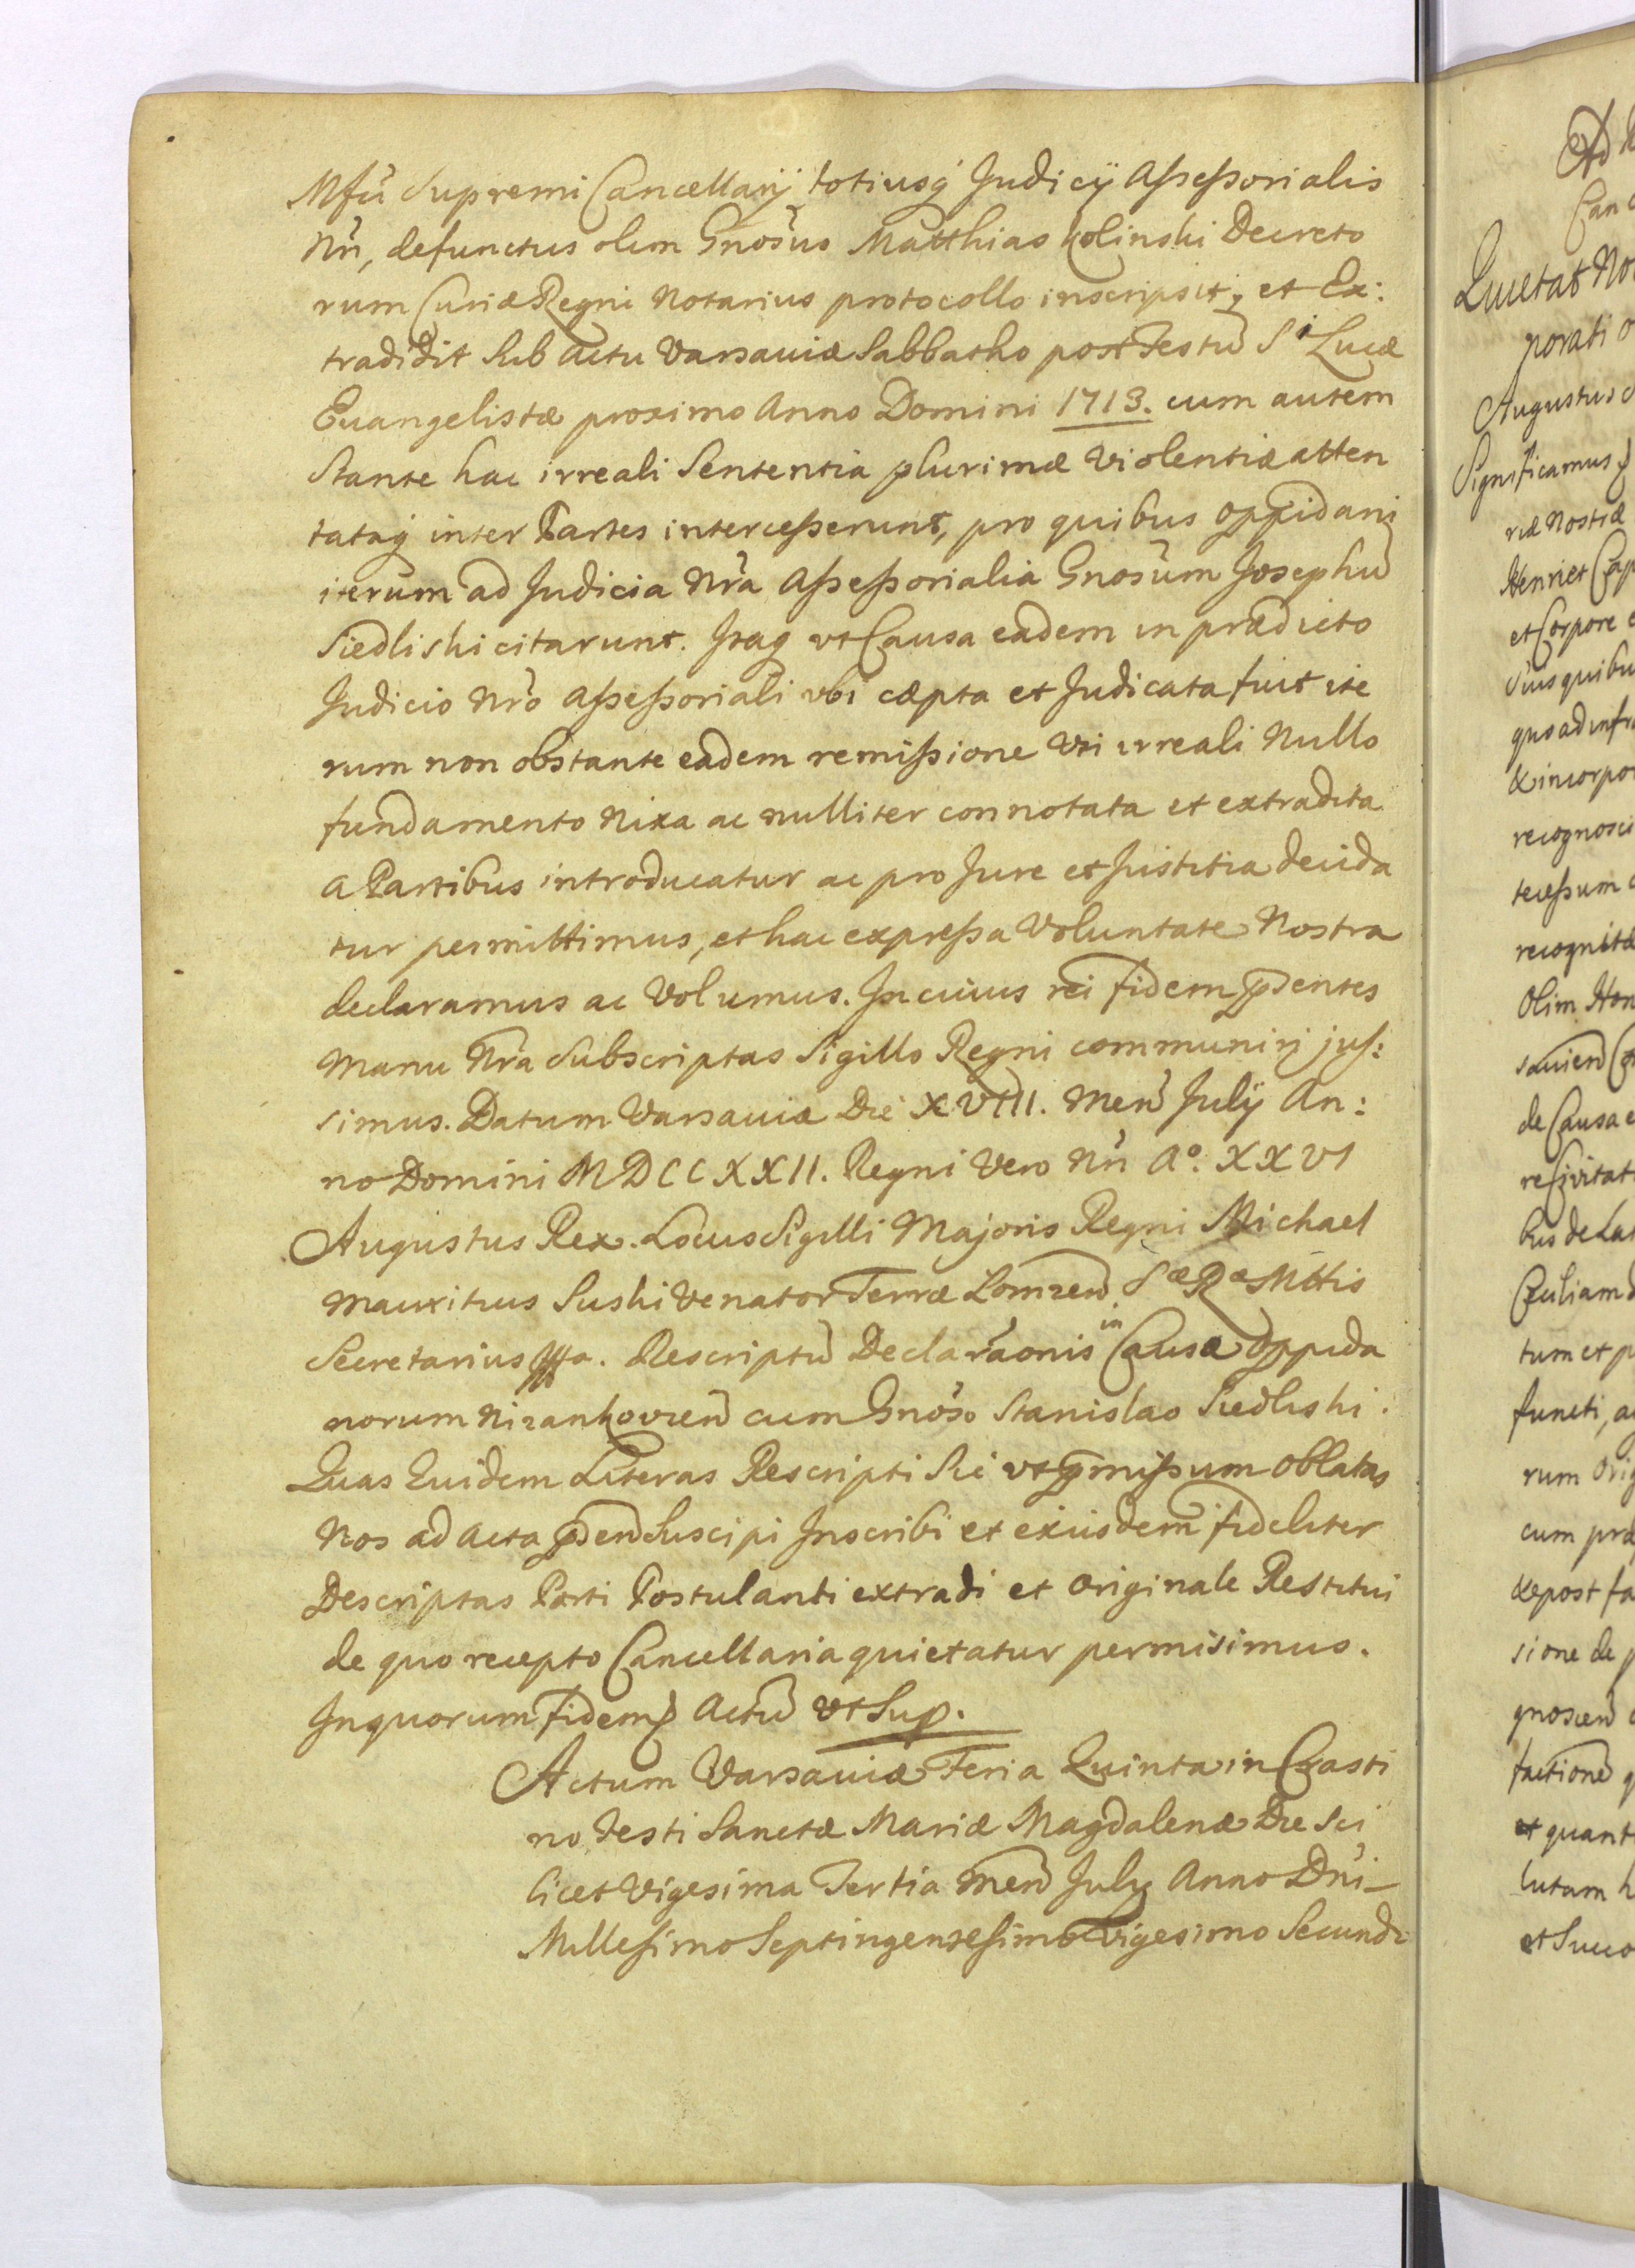 Mfū Supremi Cancellarij, totiusq́ Judicÿ Aſseſsorialis
Nři, defunctus olim Gnošus Matthias Kolinski Decreto
rum Curiæ Regni Notarius protocollo inscripsit, et Ex:
tradidit sub Actu Varsaviæ Sabbatho post Festū Sⁱ Lucæ
Evangelistæ proximo Anno Domini 1713. cum autem
Stante hac irreali Sententia plurimæ violentiæ atten
tataq́ inter Partes interceſserunt, pro quibus oppidani
iterum ad Judicia Nřa Aſseſsorialia Gnosum Josephū
Siedliski citarunt. Itaq vt Causa eadem in prædicto
Judicio Nřo Aſseſsoriali vbi cæpta et Judicata fuit ite
rum non obstante eadem remiſsione Vti irreali Nullo
fundamento Nixa ac nulliter connotata et extradita
a Partibus introducatur ac pro Jure et Justitia decida
tur permittimus, et hac expreſsa Voluntate Nostra
declaramus ac Volumus. In cuius rei fidem p̄dentes
Manu Nřa Subscriptas Sigillo Regni communirj juſ:
simus. Datum Varsaviæ Die XVIII. Men̄ Julÿ An:
no Domini MDCCXXII. Regni Vero Nři Aº. XXVI
Augustus Rex. Locus Sigilli Majoris Regni Michael
Mauritius Suski Venator Terræ Lomzen̄ Sᵃᵉ Rᵃᵉ Mttis
Secretarius mp̄a. Rescriptū Declarãonis in Causa Oppida
norum Nizankovien̄ cum Gnošo Stanislao Siedliski.
Quas Quidem Literas Rescripti Sic vt p̄miſsum oblatas
Nos ad Acta p̄den̄ Suscipi Inscribi et exiisdem fideliter
Descriptas Parti Postulanti extradi et Originale Restitui
de quo recepto Cancellaria quietatur permisimus.
In quorum fidem Actū vt Sup.
Actum Varsaviæ Feria Quinta in Crasti
no Festi Sanctæ Mariæ Magdalenæ Die Sci
licet Vigesima Tertia Men̄ July Anno Dñi
Milleſimo Septingenteſimo Vigesimo Secundo